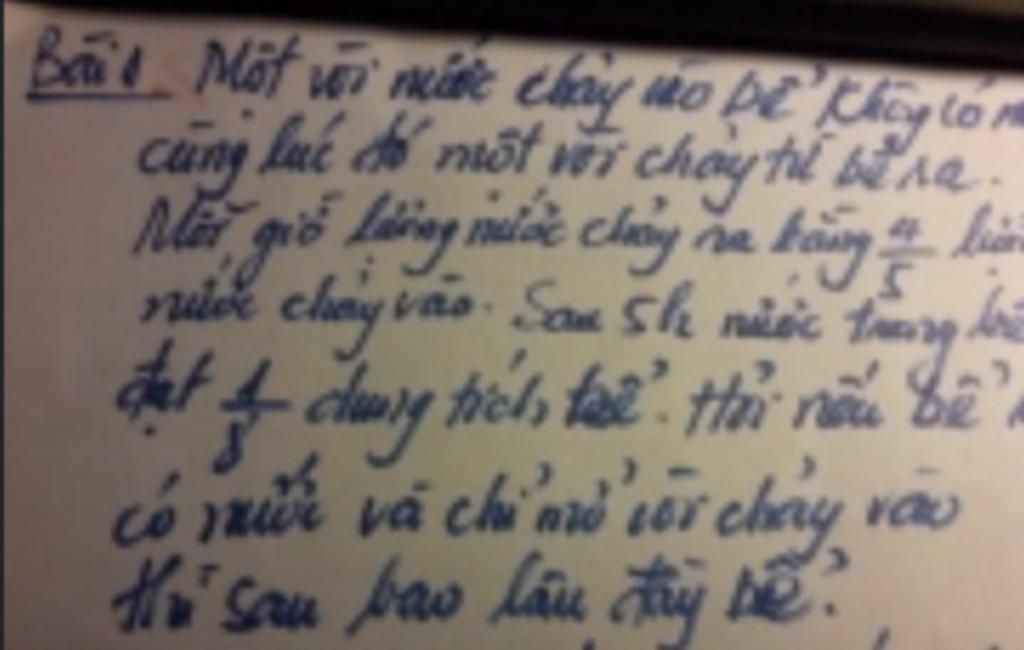 Bài 1 Một vòi nước chảy vào bể không có
cùng lúc đó một vòi chảy từ bể ra.
Mỗi giờ lượng nước chảy ra bằng 4/5
nước chảy vào. Sau 5h nước trong bể
đạt 1/8 dung tích bể. Hỏi nếu bể
có nước và chỉ mở vòi chảy vào
thì sau bao lâu đầy bể?